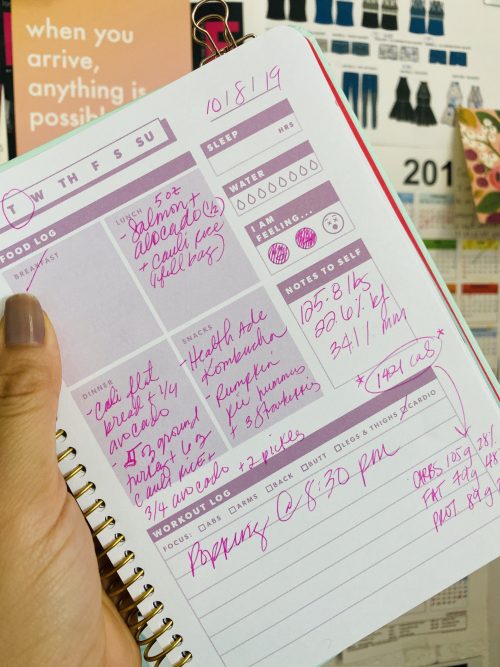 when you
arrive,
anything is
possible
10/8/19
T W TH F S SU
SLEEP
HRS
WATER
I AM
FEELING...
NOTES TO SELF
125.8 lbs
22.6% bf
34.1% mm
*1421 cal*
FOOD LOG
BREAKFAST
LUNCH
5 oz
- Salmon +
avocado (1/2)
+ cauli rice
(full bag)
DINNER
- Cali flat
bread + 1/4
avocado
- 3 ground
turkey + 6 z
cauli rice +
3/4 avocado + 2 pickles
SNACKS
- Health Ade
Kombucha
- Pumpkin
pie hummus
+ 3 Starkrisps
WORKOUT LOG
FOCUS: ABS ARMS BACK BUTT LEGS & THIGHS CARDIO
Popping @ 8:30 pm
CARBS 105g 28%
FAT 79g 48
PROT 89g 2
201